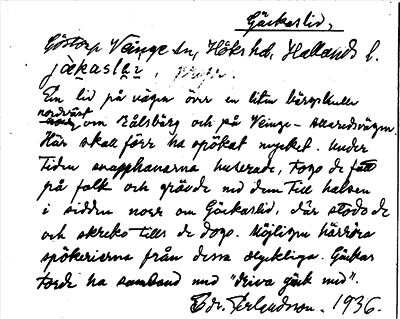 Gäckarslid,
Göstorp Veinge sn, Höks hd, Hallands l.
jäkaslər, 
En lid på vägen över en liten bärgskulle
nordväst
om Bålsbärg och på Veinge - Alaredsvägen.
Här skall förr ha spökat mycket. Under
tiden snapphanarna huserade, togo de fatt
på folk och grävde ned dem till halsen
i sidden norr om Gäckarslid, där stodo de
och skreko tills de dogo. Möjligen härröra
spökerierna från dessa olyckliga. Gäckar
torde ha samband med "driva gäck med".
Edv. Perlmdson. 1936.